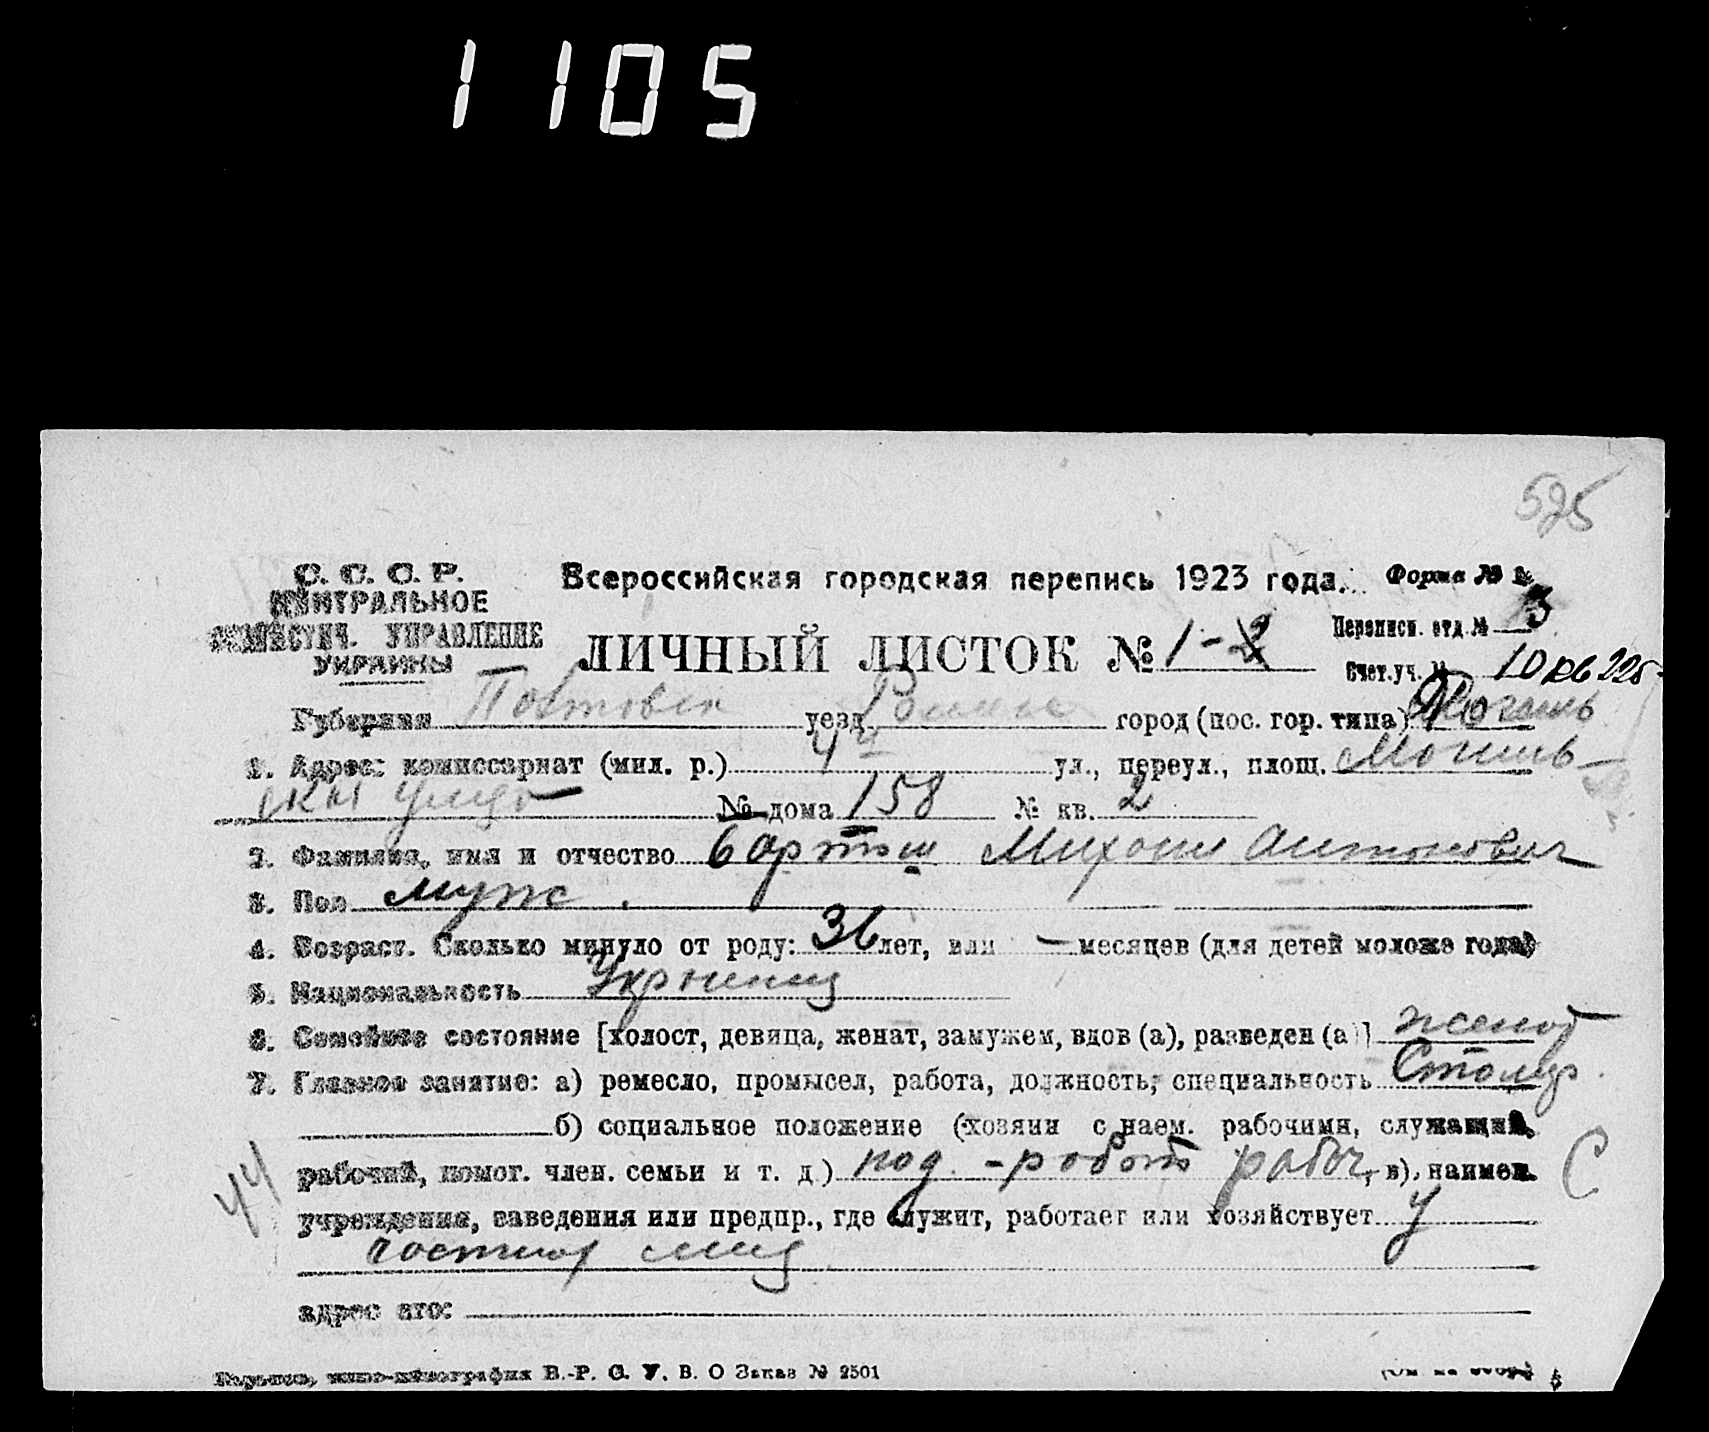 1105
525
С. С. С. Р. Всероссийская городская перепись 1923 года. Форма №
ЦЕНТРАЛЬНОЕ
СТАТИСТИЧ. УПРАВЛЕНИЕ
УКРАИНЫ
ЛИЧНЫЙ ЛИСТОК № 1-2 Переписн. отд. № 3
Счет. уч. № 10 кв 225
Губерния уезд город (пос. гор. типа)
1. Адрес: комиссариат (мил. р.) 4й ул., переул., площ. Могилев-
ская улица № дома 158 № кв. 2
2. Фамилия, имя и отчество Бартош Михаил Антонович
3. Пол муж.
4. Возраст. Сколько минуло от роду: 36 лет, или — месяцев (для детей моложе года)
5. Национальность Украинец
6. Семейное состояние [холост, девица, женат, замужем, вдов (а), разведен (а)] женат
7. Главное занятие: а) ремесло, промысел, работа, должность, специальность Столяр
б) социальное положение (хозяин с наем. рабочими, служащий,
рабочий, помог. член. семьи и т. д.) под - работ рабоч, в), наимен.
44 С
учреждения, заведения или предпр., где служит, работает или хозяйствует у
частных лиц
адрес его:
Харьков, типо-литография В.-Р. С. У. В. О Заказ № 2501
(См. на обор.)